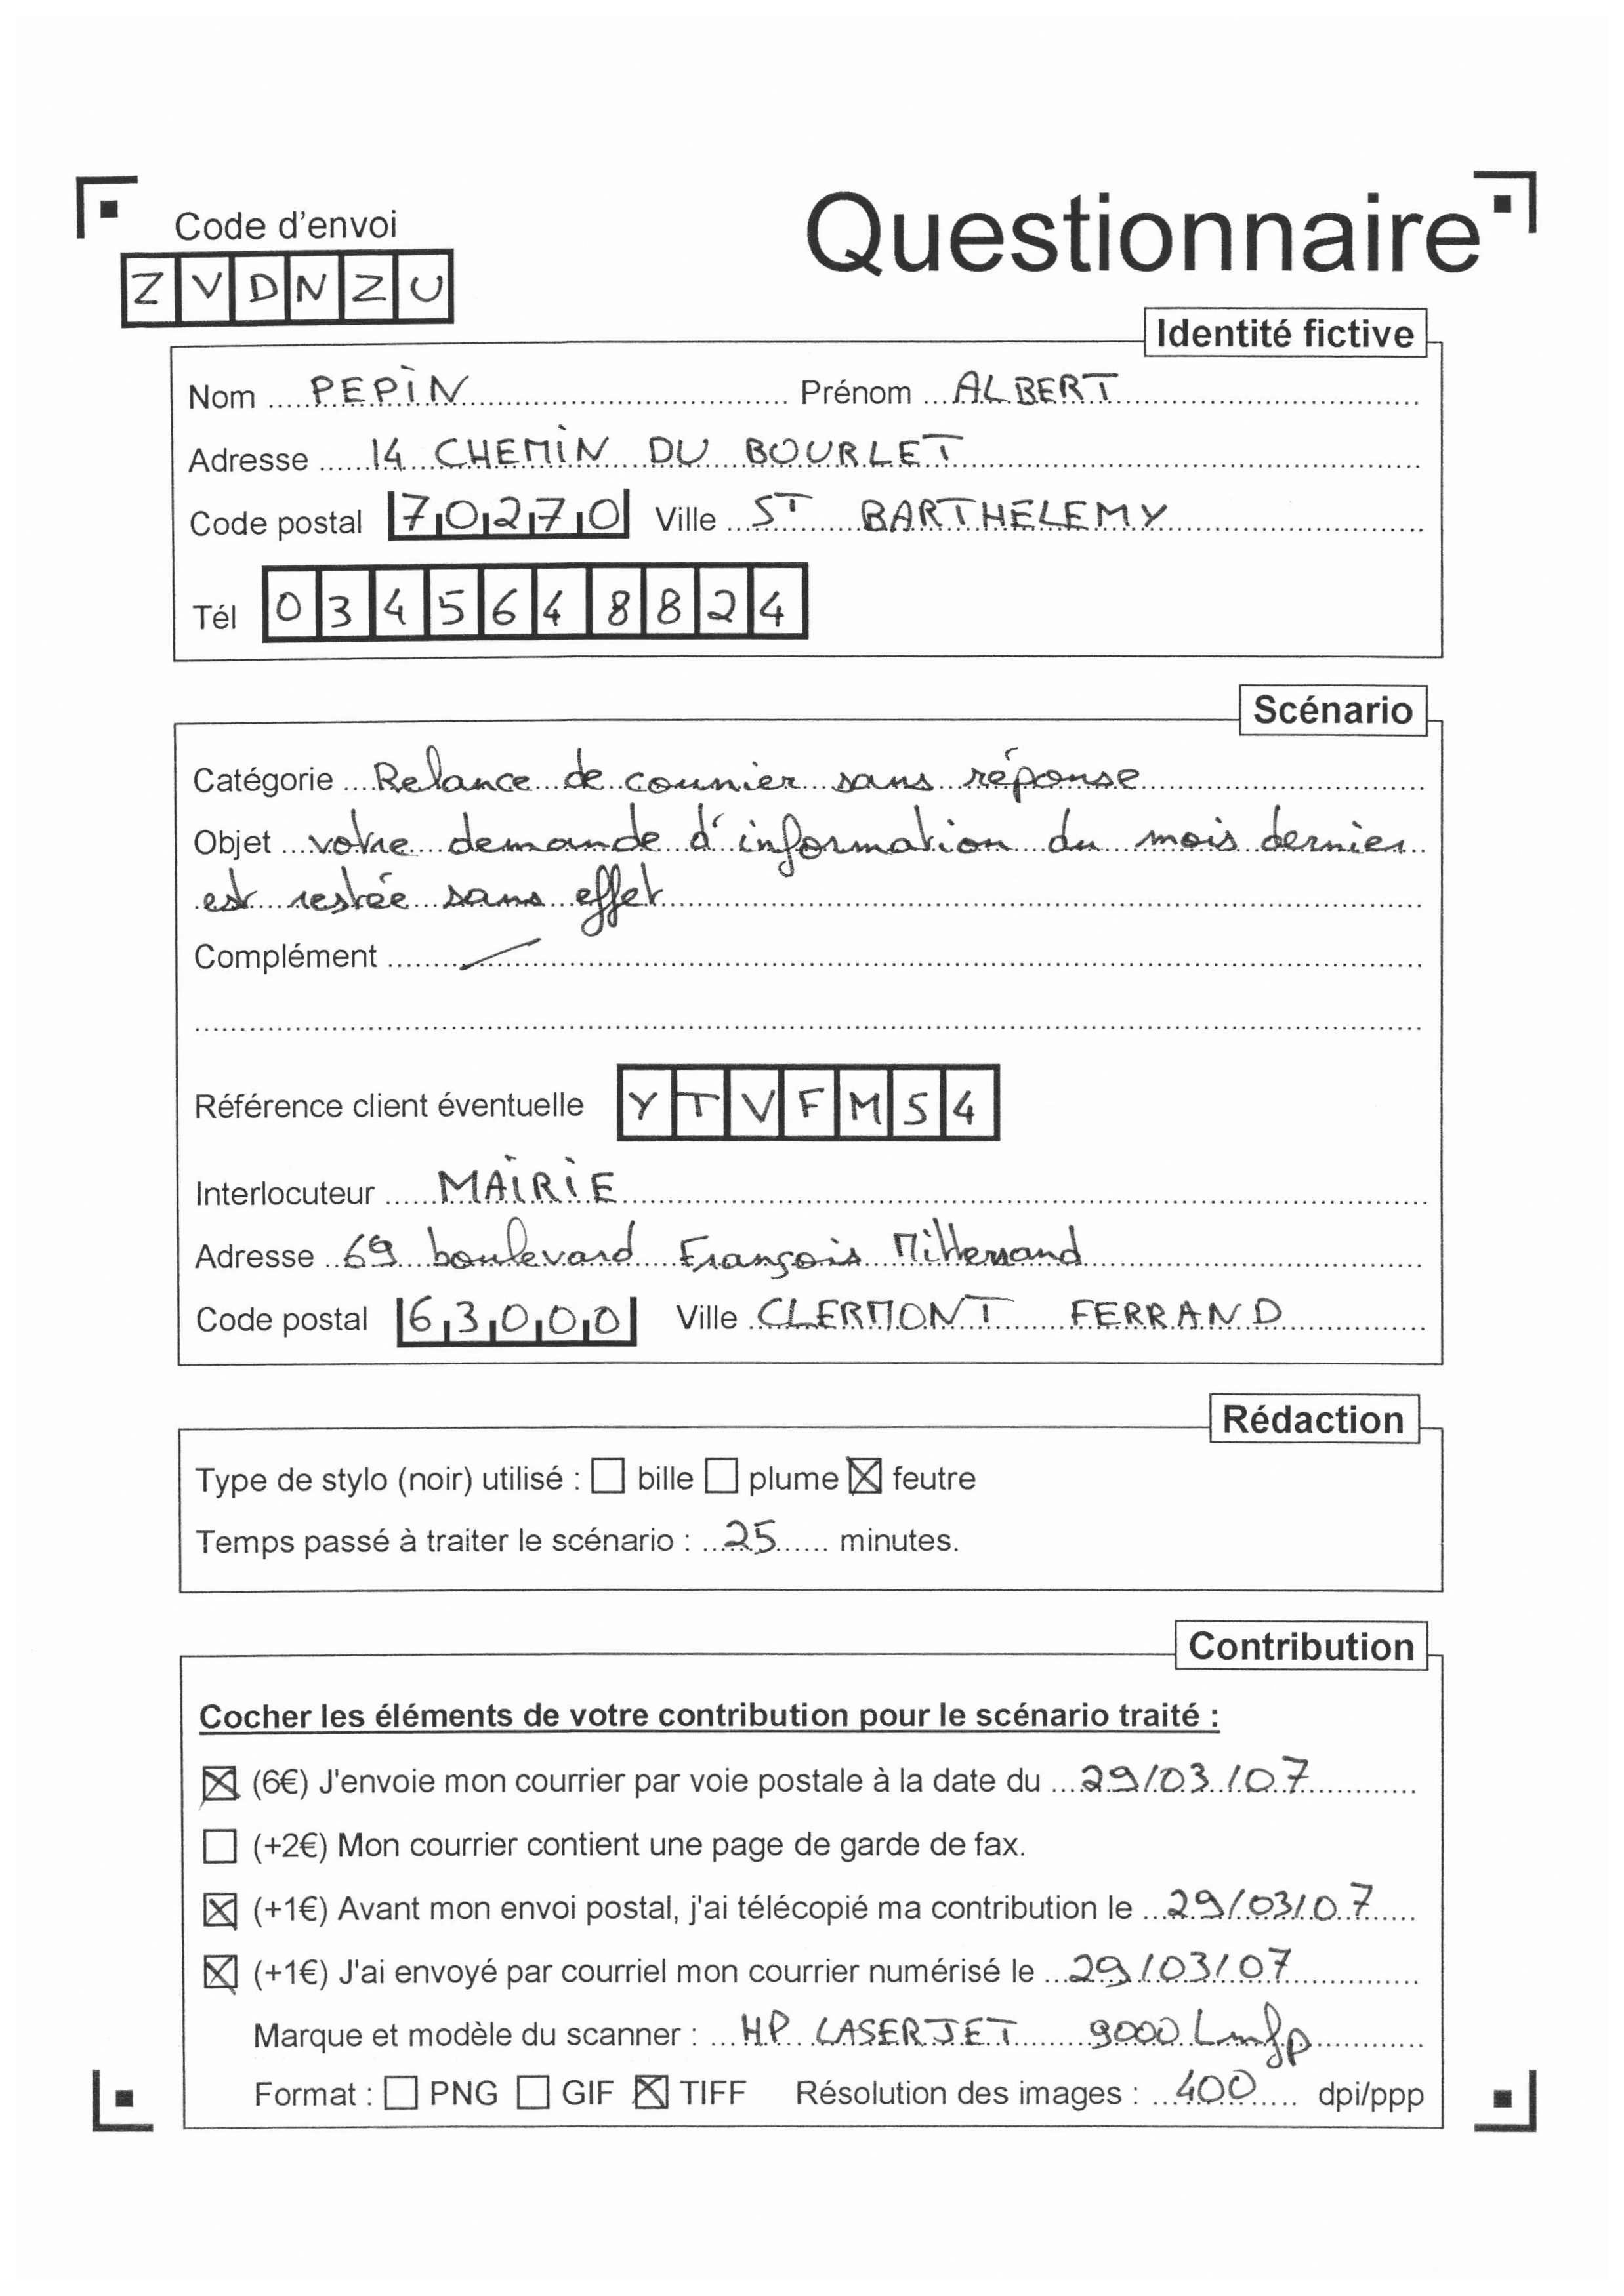 Code d'envoi
Questionnaire
ZVDNZU
Identité fictive
Nom PEPIN Prénom ALBERT
Adresse 14 CHEMIN DU BOURLET
Code postal 70270 Ville ST BARTHELEMY
Tél 0345648824
Scénario
Catégorie Relance de courrier sans réponse
Objet votre demande d'information du mois dernier
est restée sans effet
Complément
Référence client éventuelle YTVFM54
Interlocuteur MAIRIE
Adresse 69 boulevard François Mitterrand
Code postal 63000 Ville CLERMONT FERRAND
Rédaction
Type de stylo (noir) utilisé : ☐ bille ☐ plume ☒ feutre
Temps passé à traiter le scénario : 25 minutes.
Contribution
Cocher les éléments de votre contribution pour le scénario traité :
☒ (6€) J'envoie mon courrier par voie postale à la date du 29/03/07
☐ (+2€) Mon courrier contient une page de garde de fax.
☒ (+1€) Avant mon envoi postal, j'ai télécopié ma contribution le 29/03/07
☒ (+1€) J'ai envoyé par courriel mon courrier numérisé le 29/03/07
Marque et modèle du scanner : HP LASERJET 9000 Lmfp
Format : ☐ PNG ☐ GIF ☒ TIFF Résolution des images : 400 dpi/ppp